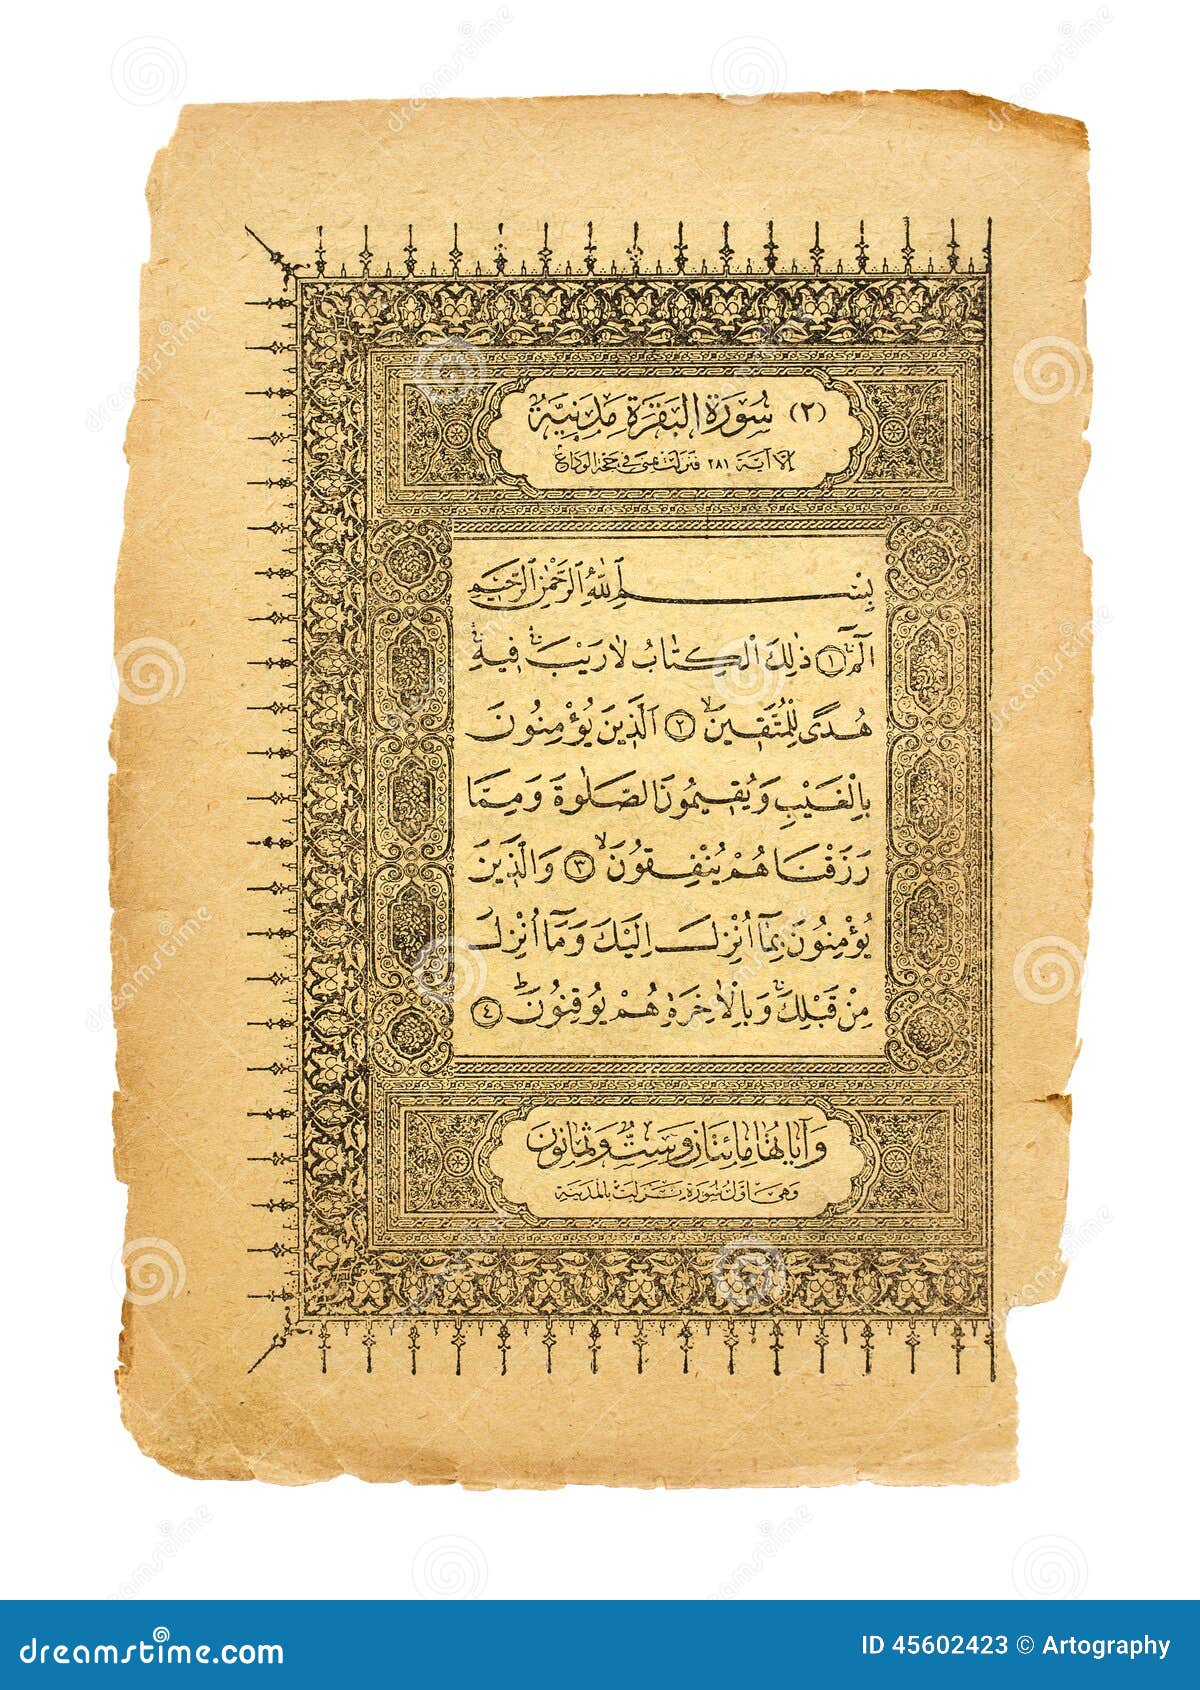 (٢) سُورَةُ الْبَقَرَةِ مَدَنِيَّةٌ
إلا آية ٢٨١ فنزلت بمنى في حجة الوداع
بِسْمِ اللّٰهِ الرَّحْمٰنِ الرَّحِيمِ
الٓمٓ ۚ ١ ذٰلِكَ الْكِتَابُ لَا رَيْبَ ۛ فِيهِ ۛ
هُدًى لِلْمُتَّقِينَ ۙ ٢ اَلَّذِينَ يُؤْمِنُونَ
بِالْغَيْبِ وَيُقِيمُونَ الصَّلٰوةَ وَمِمَّا
رَزَقْنَاهُمْ يُنْفِقُونَ ۙ ٣ وَالَّذِينَ
يُؤْمِنُونَ بِمَٓا اُنْزِلَ اِلَيْكَ وَمَٓا اُنْزِلَ
مِنْ قَبْلِكَ ۚ وَبِالْاٰخِرَةِ هُمْ يُوقِنُونَ ۜ ٤
وَآيَاتُهَا مِائَتَانِ وَسِتٌّ وَثَمَانُونَ
وَهِيَ أَوَّلُ سُورَةٍ نَزَلَتْ بِالْمَدِينَةِ
dreamstime.com
ID 45602423 © Artography